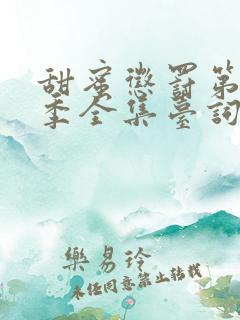 甜蜜懲罰第
季全集臺詞
樂易玲
未经同意禁止转载